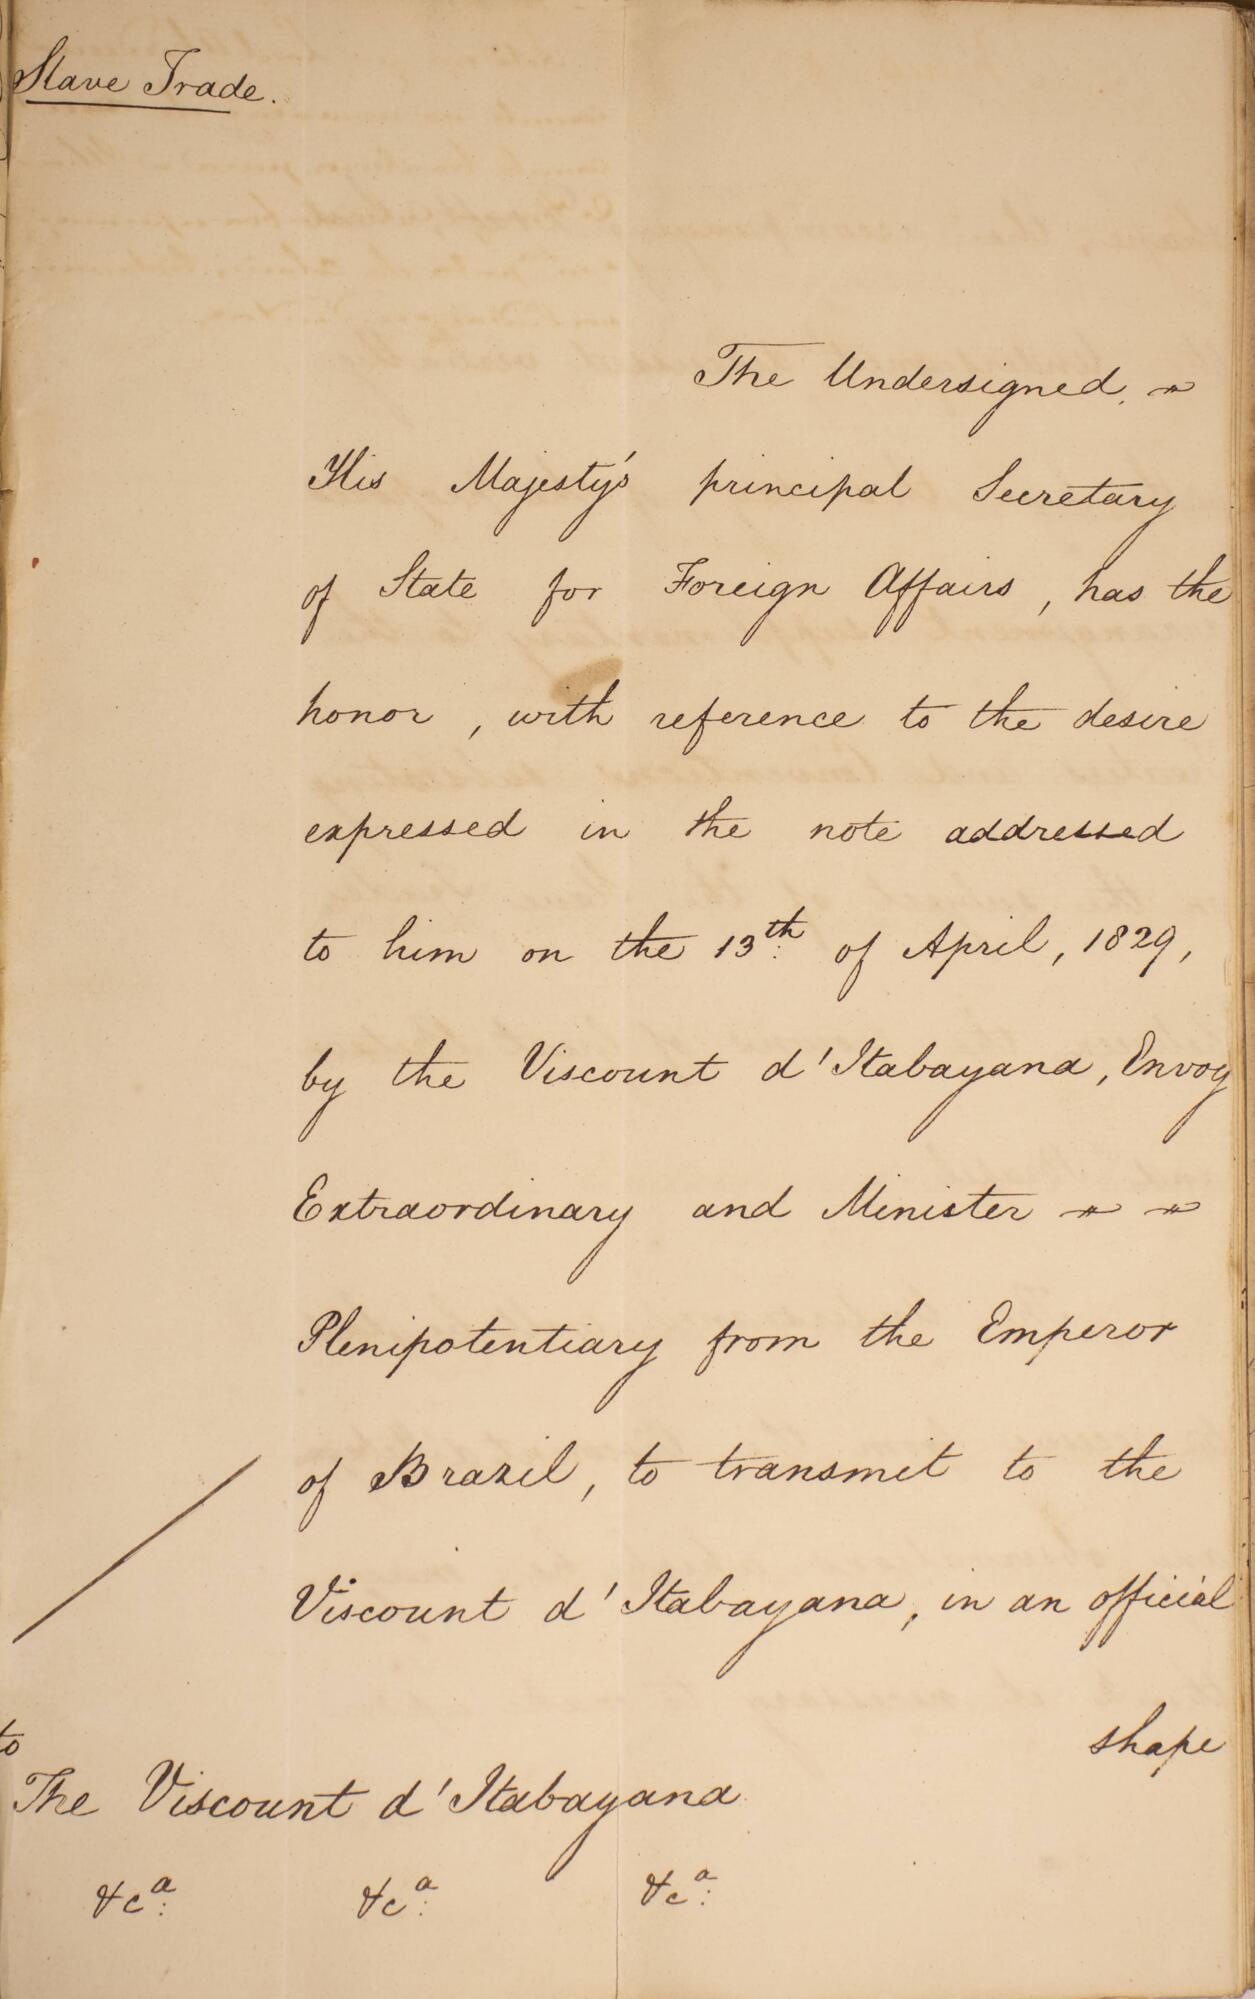 Slave Trade.
The Undersigned,
His Majesty's principal Secretary
of State for Foreign Affairs, has the
honor, with reference to the desire
expressed in the note addressed
to him on the 13th of April, 1829,
by the Viscount d'Itabayana, Envoy
Extraordinary and Minister
Plenipotentiary from the Emperor
of Brazil, to transmit to the
Viscount d'Itabayana, in an official
shape
to
The Viscount d'Itabayana
&ca: &ca: &ca: